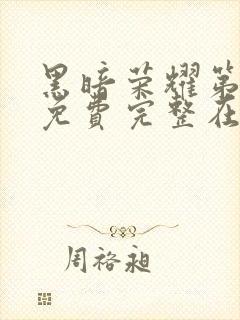 黑暗荣耀第
免費完整在
周裕昶